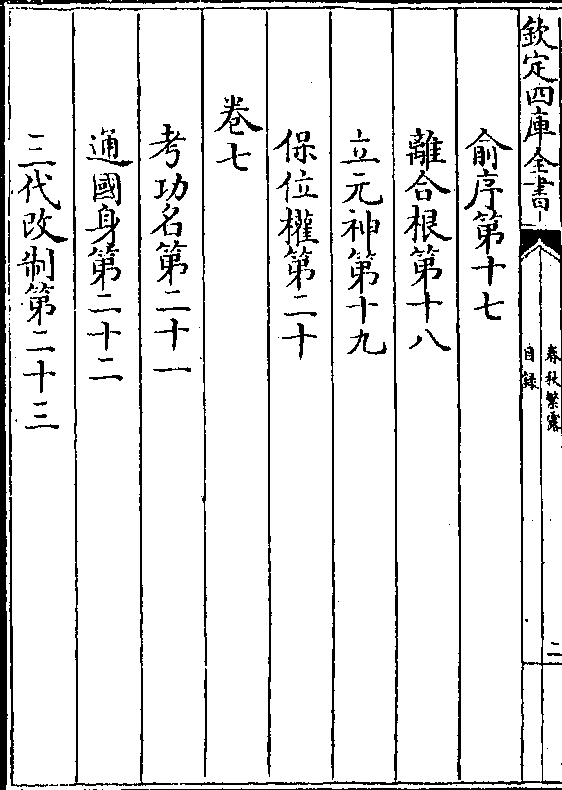 欽定四庫全書
春秋繁露
目録
二
俞序第十七
離合根第十八
立元神第十九
保位權第二十
卷七
考功名第二十一
通國身第二十二
三代改制第二十三